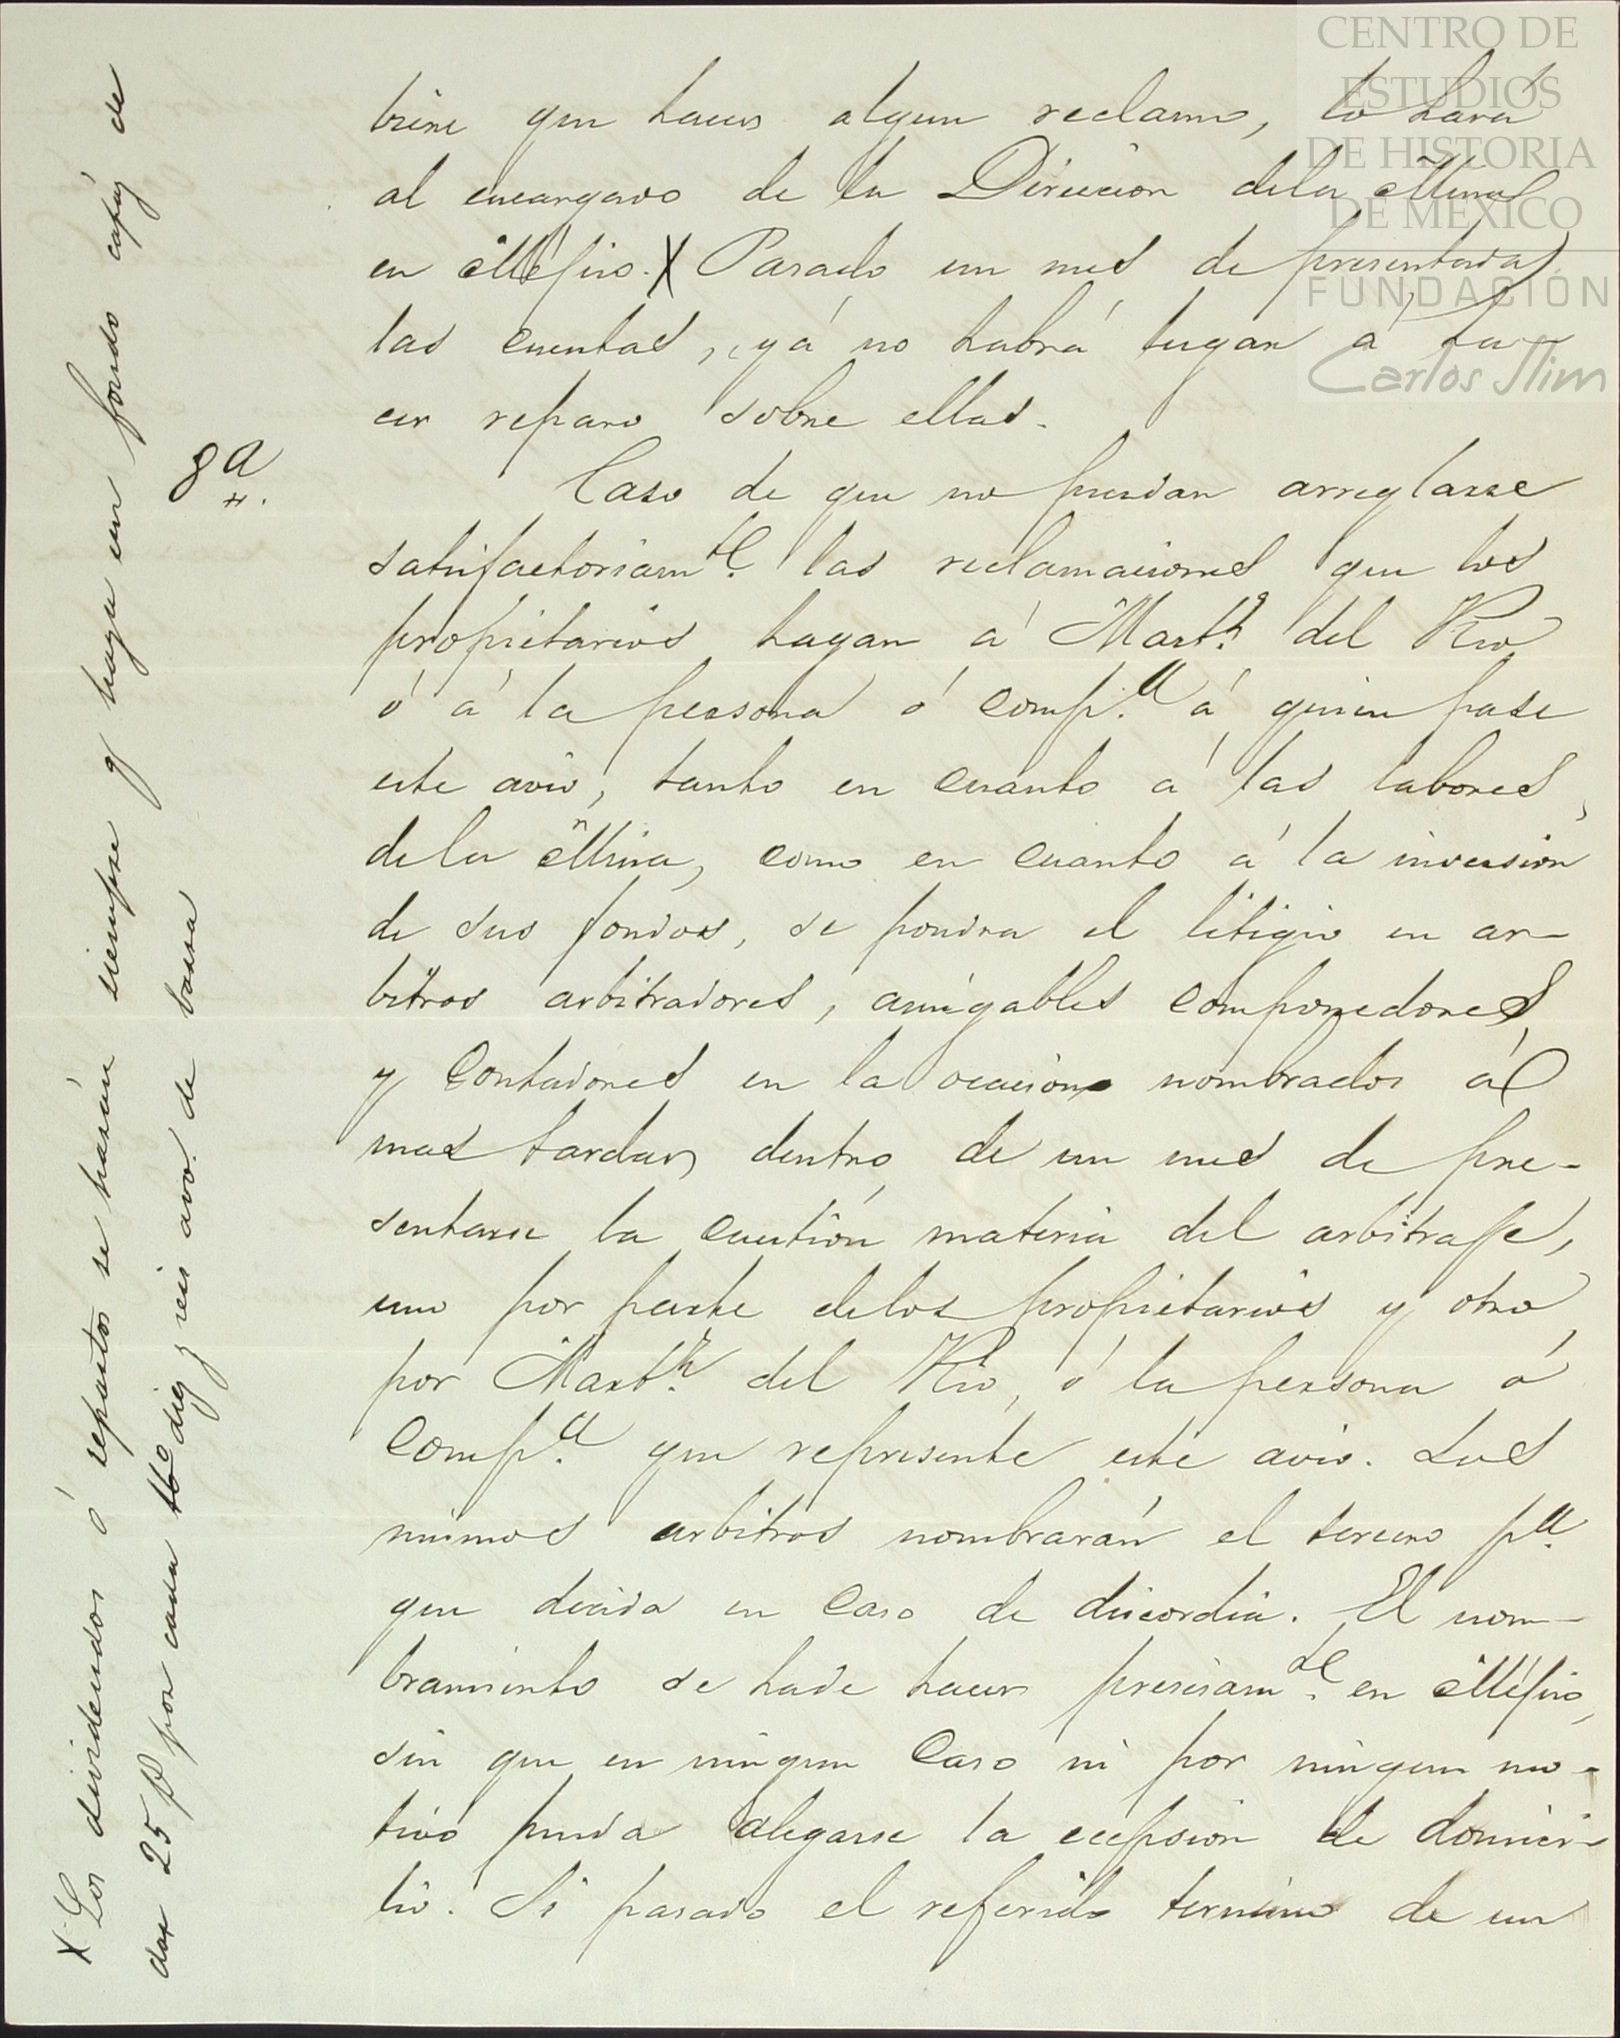 biere que hacer algun reclamo, lo hará
al encargado de la Direccion dela Mina
en Méjico. X Pasado un mes de presentadas
las cuentas, yá no habrá lugar á ha-
cer reparo sobre ellas.
8ª.
Caso de que no puedan arreglarse
satisfactoriamte. las reclamaciones que los
propietarios hagan á Martz. del Rio
ó á la persona ó compª. á quien pase
este avio, tanto en cuanto á las labores
dela Mina, como en cuanto á la inversion
de sus fondos, se pondra el litigio en ar-
bitros arbitradores, amigables componedores
y Contadores en la ocacion nombrados ál
mas tardar, dentro de un mes de pre-
sentarse la cuestión materia del arbitraje,
uno por parte delos propietarios y otro
por Martz. del Rio, ó la persona ó
Compª. que represente este avio. Los
mismos arbitros nombrarán el tercero pª.
que decida en Caso de discordia. El nom-
bramiento se hade hacer presisamte. en Méjico,
sin que en ningun Caso ni por ningun mo-
tivo pueda alegarse la ecepsion de domici-
lio. Si pasado el referido termino de un
X Los dividendos ó repartos se harán siempre q haya un fondo capáz de
dar 25 P por cada diez y seis avo. de barra
CENTRO DE
ESTUDIOS
DE HISTORIA
DE MEXICO
FUNDACIÓN
Carlos Slim